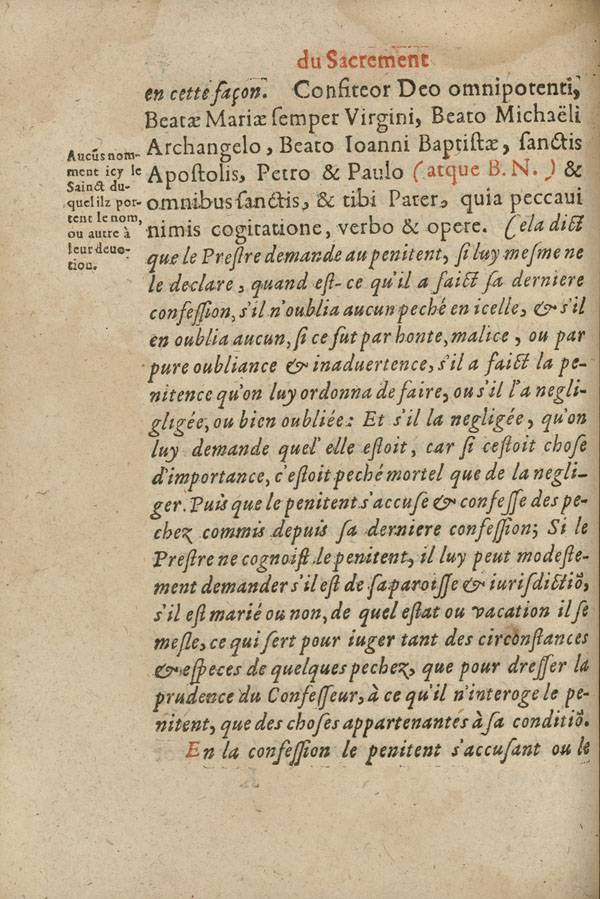 du Sacrement
en cette façon. Confiteor Deo omnipotenti,
Beatæ Mariæ ſemper Virgini, Beato Michaëli
Archangelo, Beato Ioanni Baptiſtæ, ſanctis
Apoſtolis, Petro & Paulo (atque B. N.) &
omnibus ſanctis, & tibi Pater, quia peccaui
nimis cogitatione, verbo & opere. Cela dict
que le Preſtre demande au penitent, ſi luy meſme ne
le declare, quand eſt-ce qu'il a faict ſa derniere
confeſſion, s'il n'oublia aucun peché en icelle, & s'il
en oublia aucun, ſi ce fut par honte, malice, ou par
pure oubliance & inaduertence, s'il a faict la pe-
nitence qu'on luy ordonna de faire, ou s'il l'a negli-
gligée, ou bien oubliée: Et s'il la negligée, qu'on
luy demande quel' elle eſtoit, car ſi ceſtoit choſe
d'importance, c'eſtoit peché mortel que de la negli-
ger. Puis que le penitent s'accuſe & confeſſe des pe-
chez commis depuis ſa derniere confeſſion; Si le
Preſtre ne cognoiſt le penitent, il luy peut modeſte-
ment demander s'il eſt de ſa paroiſſe & iurisdictiõ,
s'il eſt marié ou non, de quel eſtat ou vacation il ſe
meſle, ce qui ſert pour iuger tant des circonſtances
& eſpeces de quelques pechez, que pour dreſſer la
prudence du Confeſſeur, à ce qu'il n'interoge le pe-
nitent, que des choſes appartenantes à ſa conditiõ.
En la confeſſion le penitent s'accuſant ou le
Aucũs nom-
ment icy le
Sainct du-
quel ilz por-
tent le nom,
ou autre à
leur deuo-
tion.